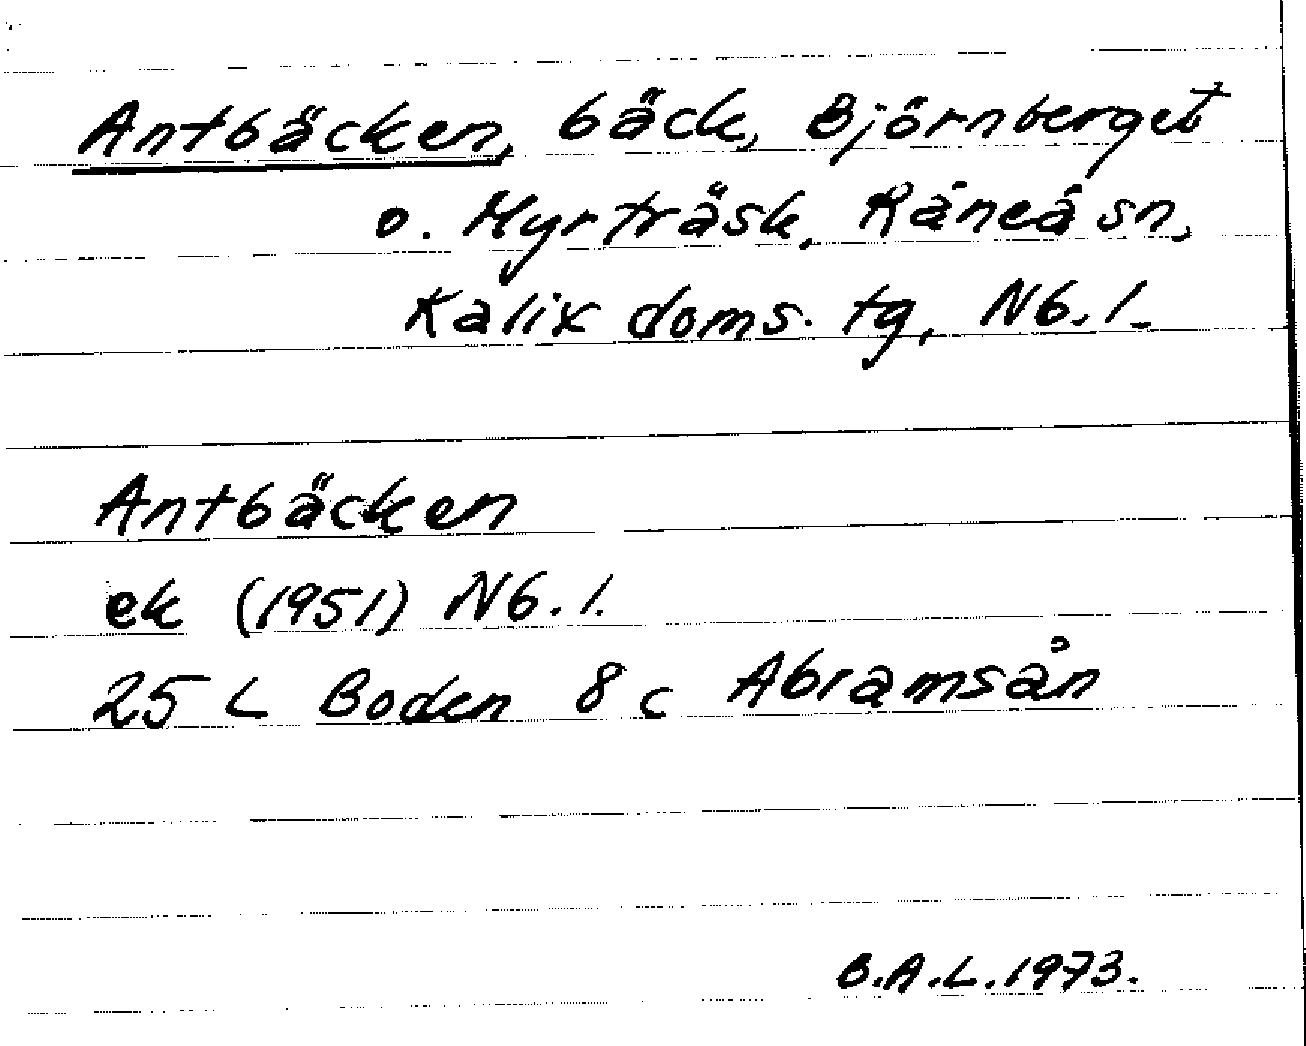 Antbäcken, bäck, Björnberget
o. Myrträsk, Råneå sn,
Kalix doms. tg, Nb. l.
Antbäcken
ek (1951) Nb. l.
25 L Boden 8 c Abramsån
B.A.L. 1973.